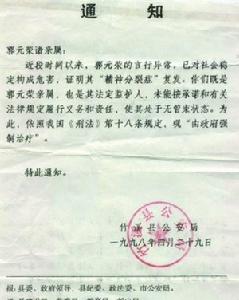 通 知
郭元荣诸亲属:
近段时间以来,郭元荣的言行异常,已对社会稳
定构成危害,证明其“精神分裂症”复发,你们既是
郭元荣亲属,也是其法定监护人,未能按承诺和有关
法律规定履行义务和责任,使其处于无管束状态。为
此,依照我国《刑法》第十八条规定,现“由政府强
制治疗”。
特此通知。
竹溪县公安局
一九九八年四月二十九日
报:县委、政府领导、县纪委、政法委、市公安局。